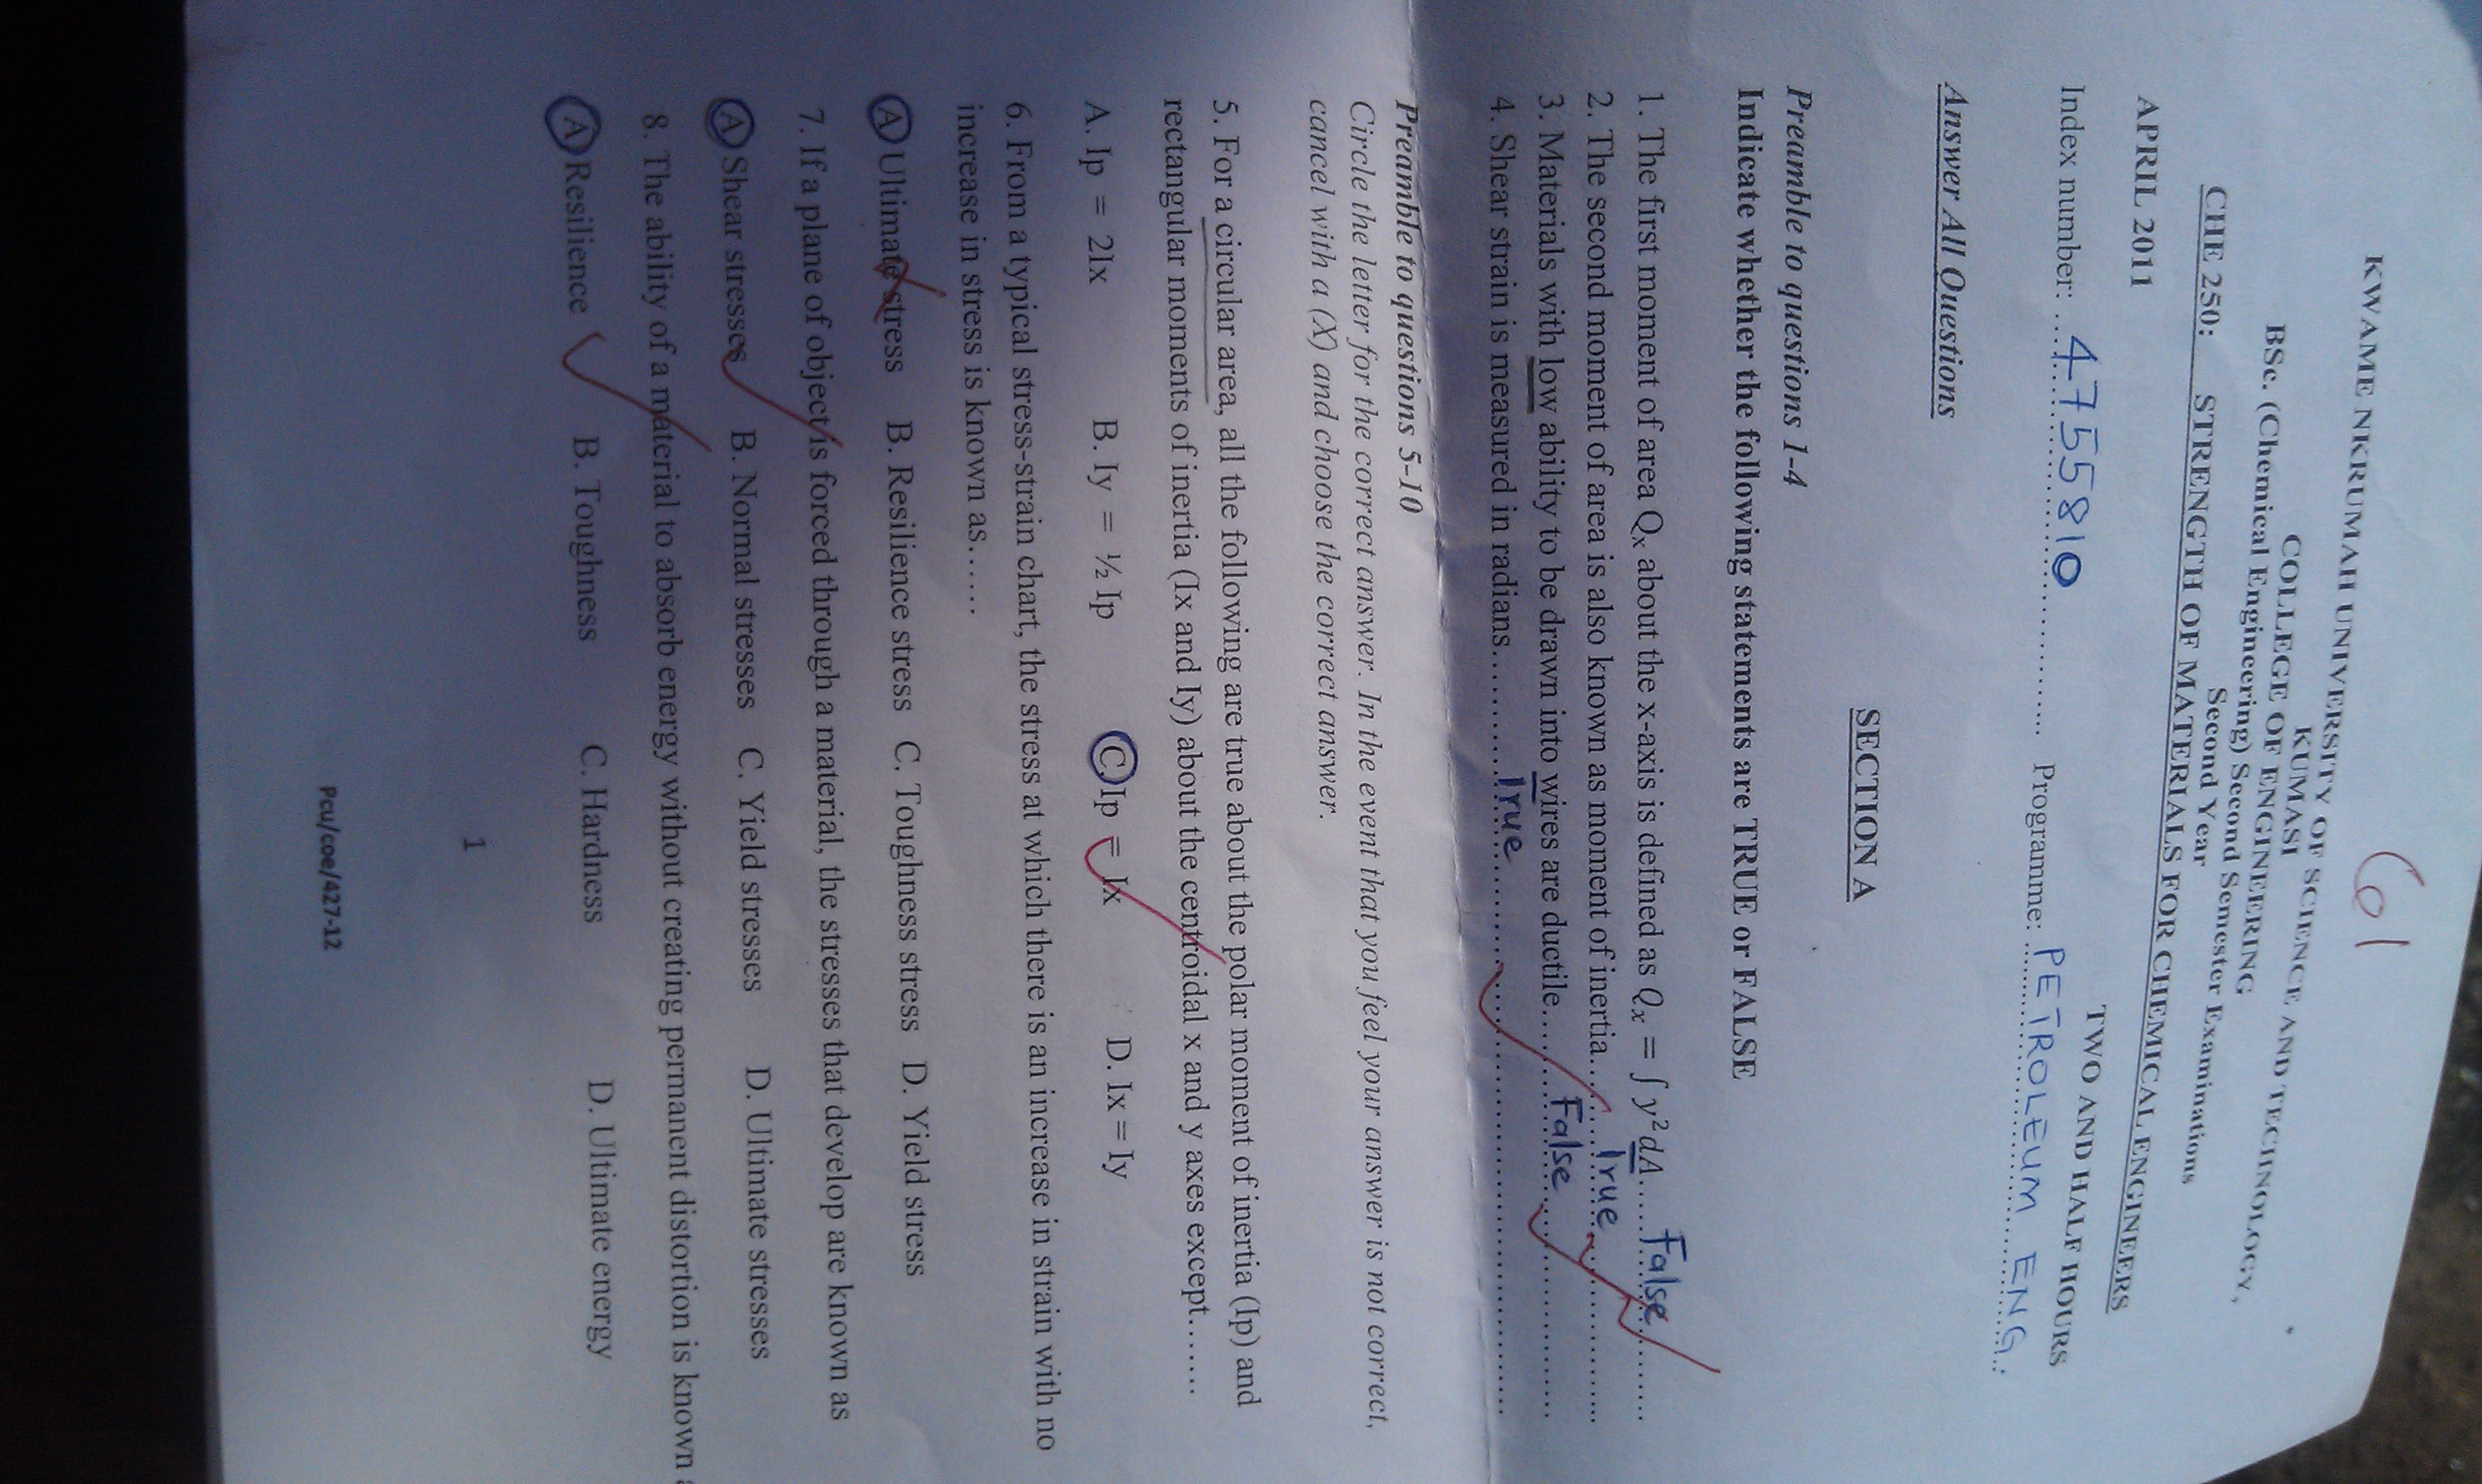 61
KWAME NKRUMAH UNIVERSITY OF SCIENCE AND TECHNOLOGY,
KUMASI
COLLEGE OF ENGINEERING
BSc. (Chemical Engineering) Second Semester Examinations
Second Year
CHE 250: STRENGTH OF MATERIALS FOR CHEMICAL ENGINEERS
APRIL 2011
TWO AND HALF HOURS
Index number: 4755810 Programme: PETROLEUM ENG.
Answer All Questions
SECTION A
Preamble to questions 1-4
Indicate whether the following statements are TRUE or FALSE
1. The first moment of area Qₓ about the x-axis is defined as Qₓ = ∫ y²dA..... False
2. The second moment of area is also known as moment of inertia... True
3. Materials with low ability to be drawn into wires are ductile.... False
4. Shear strain is measured in radians........... True
Preamble to questions 5-10
Circle the letter for the correct answer. In the event that you feel your answer is not correct,
cancel with a (X) and choose the correct answer.
5. For a circular area, all the following are true about the polar moment of inertia (Ip) and
rectangular moments of inertia (Ix and Iy) about the centroidal x and y axes except.......
A. Ip = 2Ix B. Iy = ½ Ip C. Ip = Ix D. Ix = Iy
6. From a typical stress-strain chart, the stress at which there is an increase in strain with no
increase in stress is known as......
A Ultimate stress B. Resilience stress C. Toughness stress D. Yield stress
7. If a plane of object is forced through a material, the stresses that develop are known as
A Shear stresses B. Normal stresses C. Yield stresses D. Ultimate stresses
8. The ability of a material to absorb energy without creating permanent distortion is known
A Resilience B. Toughness C. Hardness D. Ultimate energy
1
Pcu/coe/427-12